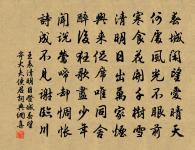 春城閑望愛晴天
何處風光不眼前
寒食花開千樹雪
清明日出萬家煙
興來促席唯同舍
醉後狂歌盡少年
聞說鶯啼卻惆悵
詩成不見謝臨川
王表清明日登城春望
寄大夫使君詞典網